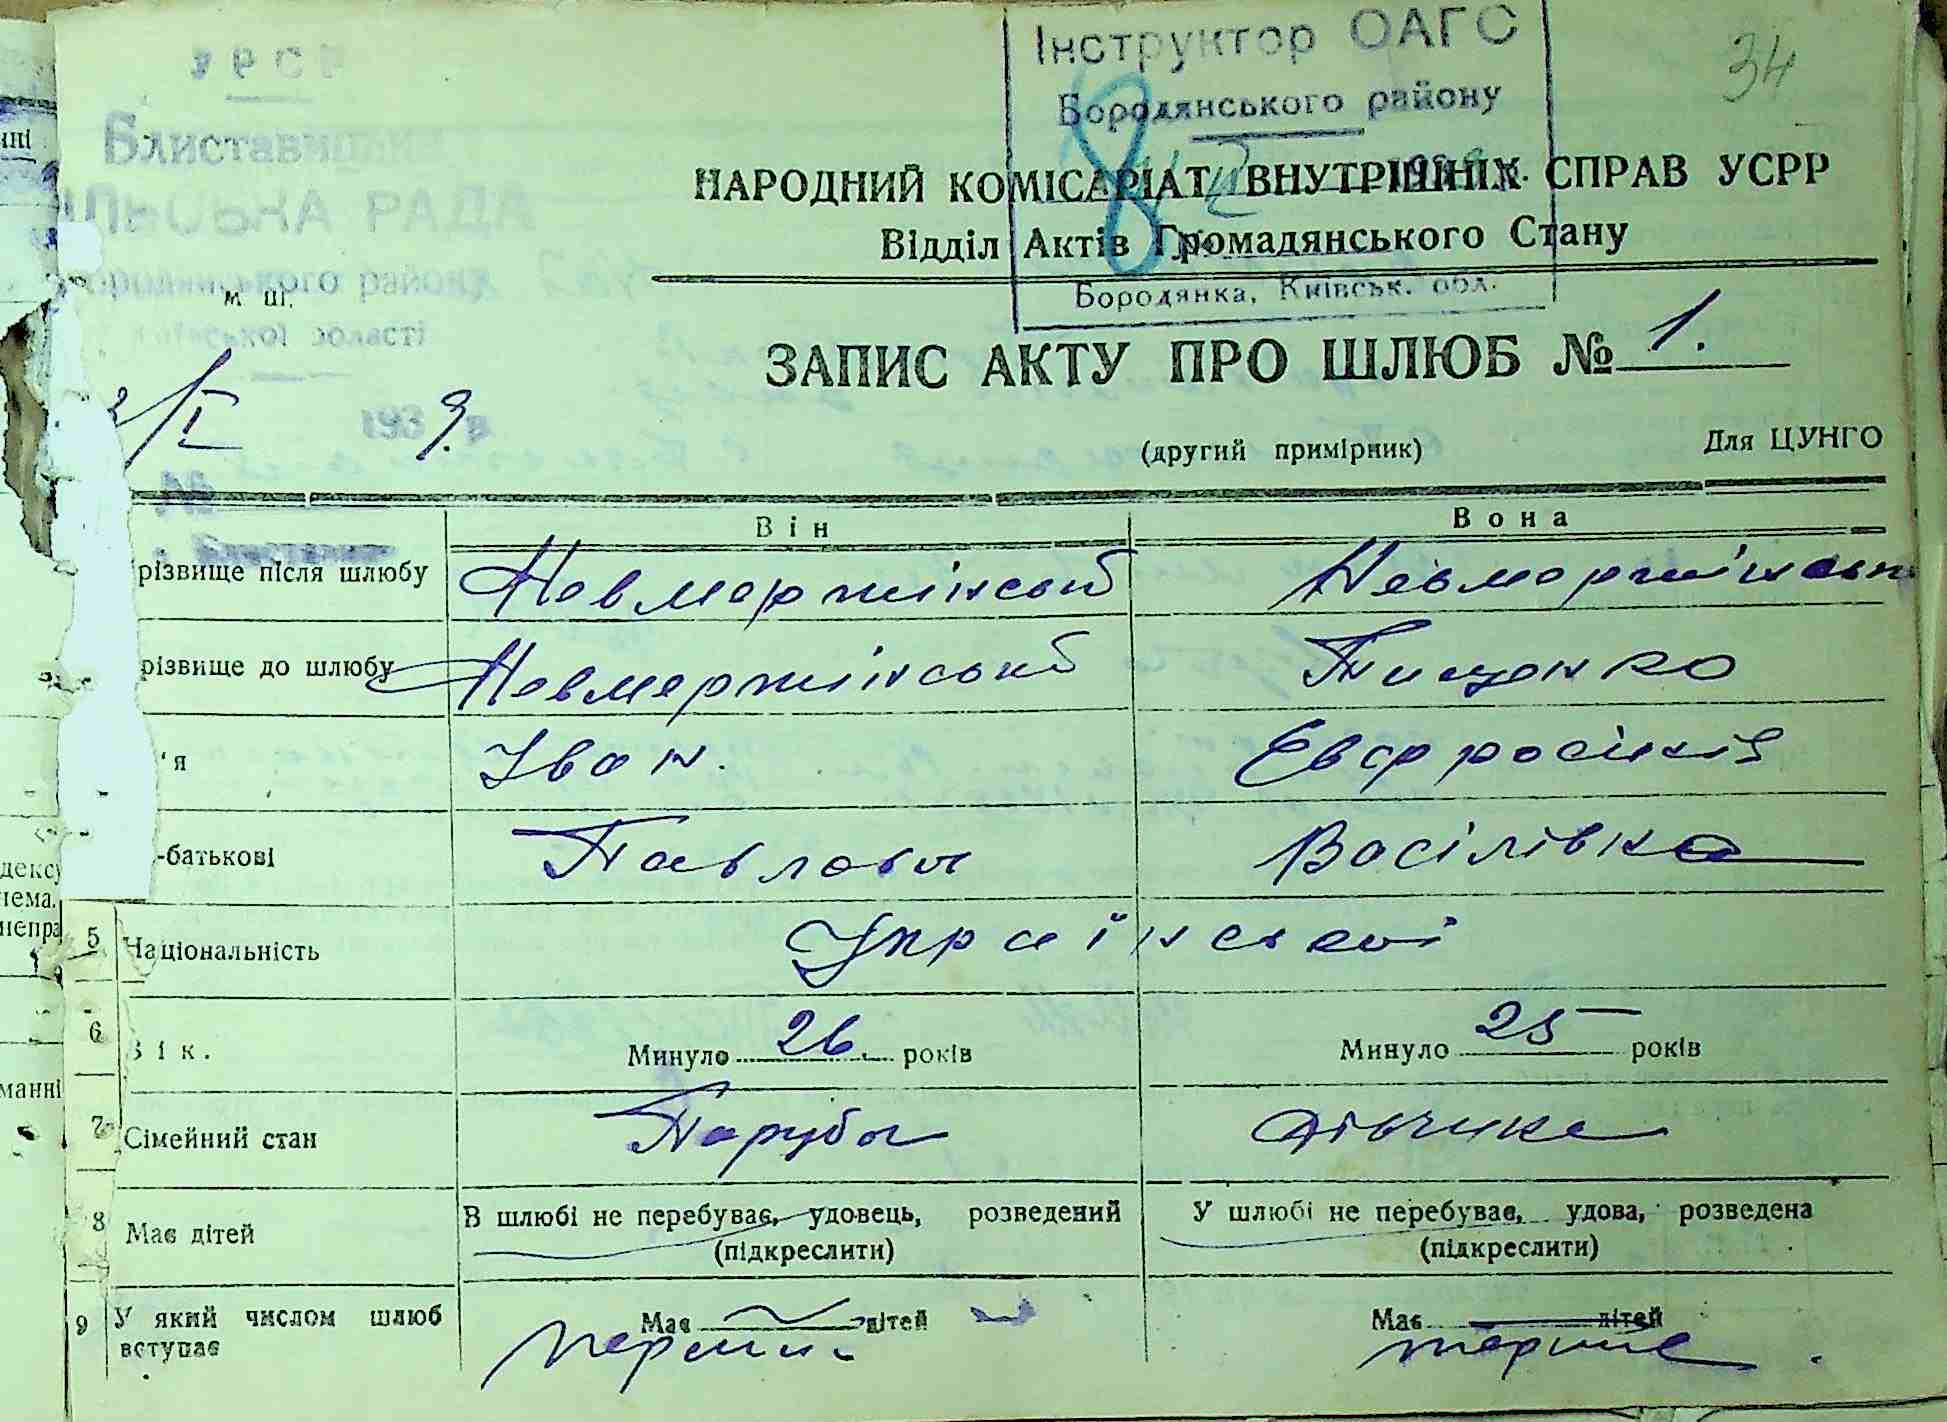 34
УРСР
Інструктор ОАГС
Бородянського району
Блиставицька
СІЛЬСЬКА РАДА
Бородянського району
Київської області
НАРОДНИЙ КОМІСАРІАТ ВНУТРІШНІХ СПРАВ УСРР
Відділ Актів Громадянського Стану
Бородянка, Київськ. обл.
м ш.
ЗАПИС АКТУ ПРО ШЛЮБ № 1.
2/I 1939 р.
(другий примірник) Для ЦУНГО
№
Він Вона
різвище після шлюбу Невмержицський Невмержицськ
різвище до шлюбу Невмержицський Тищенко
'я Іван. Евфросинія
-батькові Павлович Василівна
5 Національність Українські
6 Вік. Минуло 26. років Минуло 25 років
7 Сімейний стан Парубок дівчина
8 Має дітей В шлюбі не перебуває, удовець, розведений У шлюбі не перебуває, удова, розведена
(підкреслити) (підкреслити)
9 У який числом шлюб вступає Має дітей Має дітей
перший перший
дексу
нема.
непра
манні